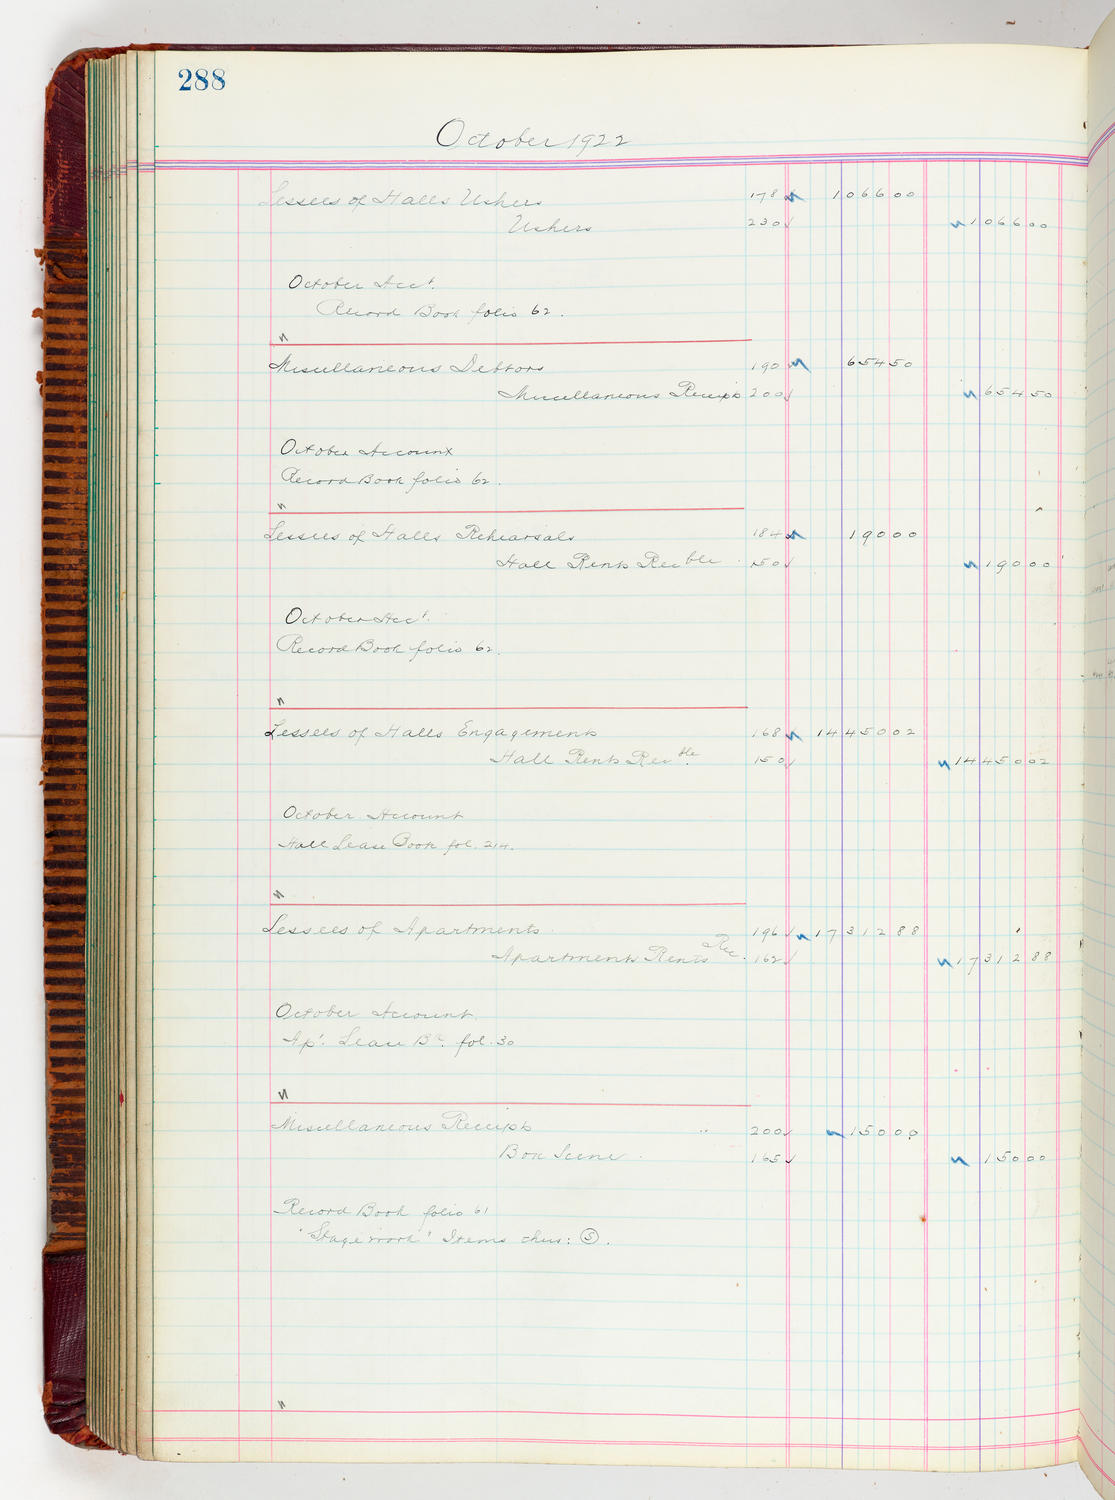 288
October 1922
Lessees of Halls Ushers 178 1066 00
Ushers 230 1066 00
October Acct.
Record Book folio 62.
"
Miscellaneous Debtors 190 654 50
Miscellaneous Receipts 200 654 50
October Account
Record Book folio 62.
"
Lessees of Halls Rehearsals 184 190 00
Hall Rents Rec ble 150 190 00
October Acct.
Record Book folio 62.
"
Lessees of Halls Engagements 168 14450 02
Hall Rents Rec ble. 150 14450 02
October Account
Hall Lease Book fol. 214.
"
Lessees of Apartments 196 17312 88
Apartments Rents Rec. 162 17312 88
October Account
Apt. Lease Bk. fol. 30
"
Miscellaneous Receipts " 200 150 00
Box Scene 165 150 00
Record Book folio 61
"Stage work" Items thus: 5.
"